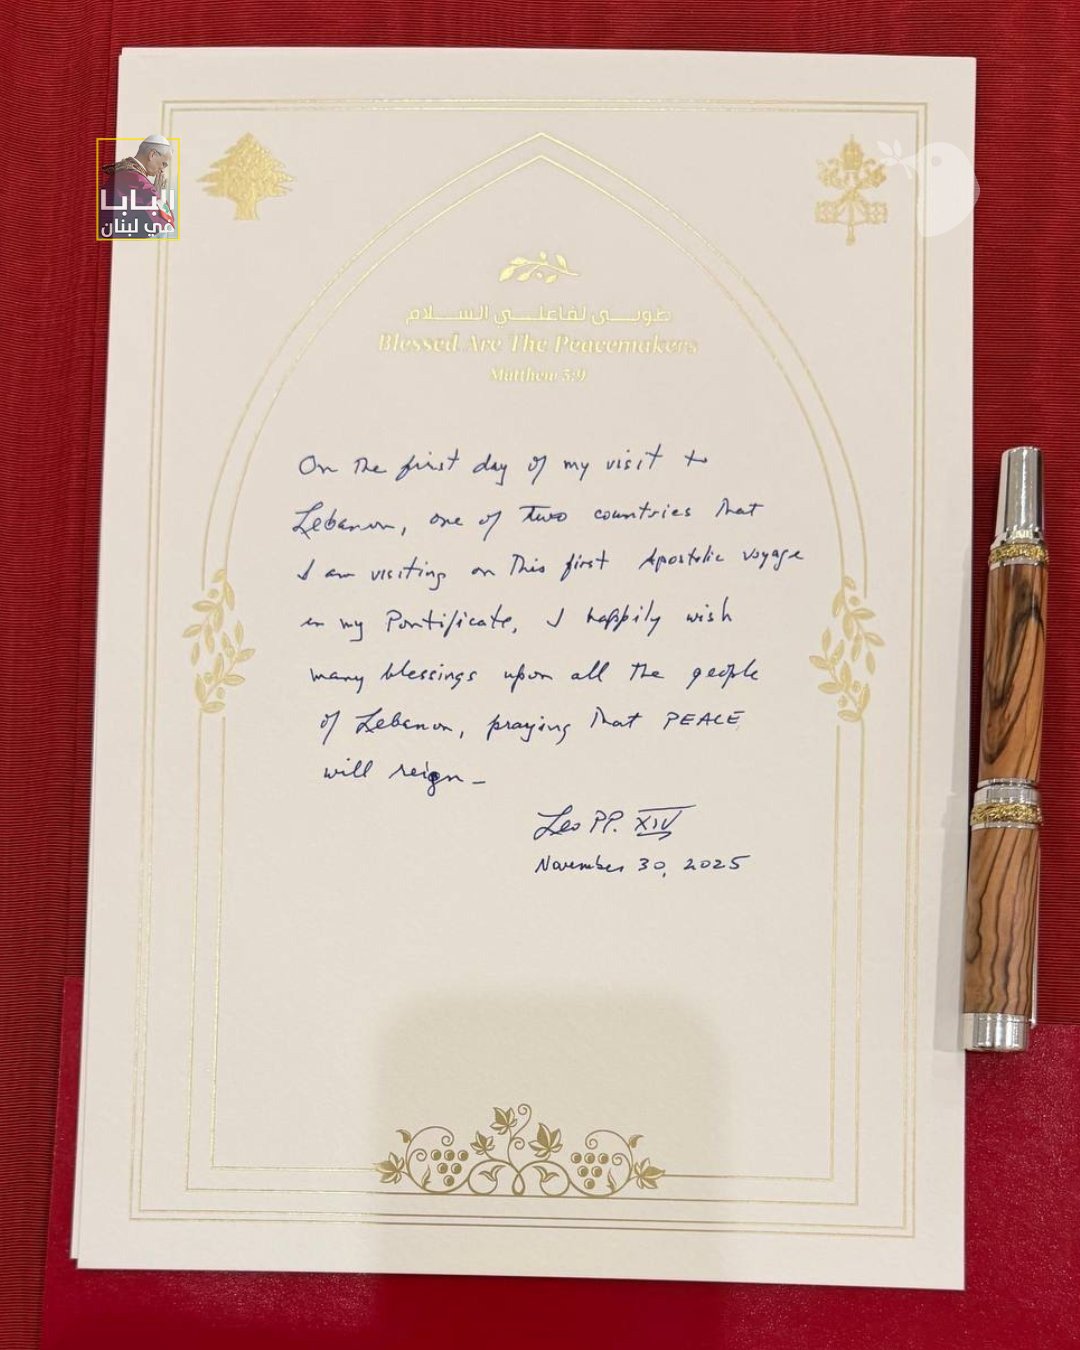 البابا
في لبنان
طوبى لفاعلي السلام
Blessed Are The Peacemakers
Matthew 5:9
On the first day of my visit to
Lebanon, one of two countries that
I am visiting on this first Apostolic voyage
in my Pontificate, I happily wish
many blessings upon all the people
of Lebanon, praying that PEACE
will reign -
Leo PP. XIV
November 30, 2025